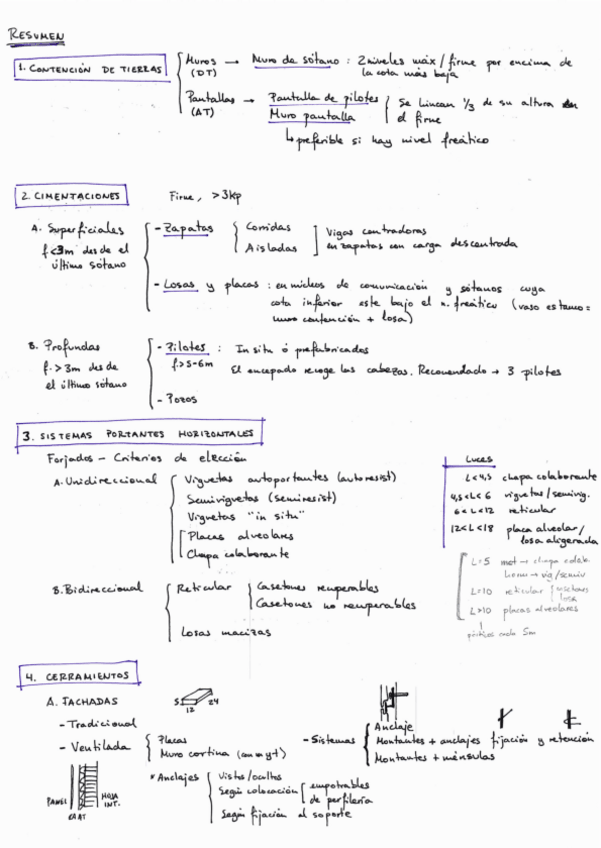 RESUMEN
1. CONTENCIÓN DE TIERRAS
Muros → Muro de sótano : 2 niveles máx / firme por encima de
(DT) la cota más baja
Pantallas → Pantalla de pilotes Se hincan 1/3 de su altura en
(AT) Muro pantalla el firme
↳ preferible si hay nivel freático
2. CIMENTACIONES Firme, > 3kp
A. Superficiales - Zapatas Corridas Vigas centradoras
f<3m desde el Aisladas en zapatas con carga descentrada
último sótano
- Losas y placas : en núcleos de comunicación y sótanos cuya
cota inferior este bajo el n. freático (vaso estanco =
muro contención + losa)
B. Profundas - Pilotes : In situ ó prefabricados
f. > 3m desde f. > 5-6m El encepado recoge las cabezas. Recomendado → 3 pilotes
el último sótano
- Pozos
3. SISTEMAS PORTANTES HORIZONTALES
Forjados - Criterios de elección
A. Unidireccional Viguetas autoportantes (autoresist)
Semiviguetas (semiresist)
Viguetas "in situ"
Placas alveolares
Chapa colaborante
Luces
L < 4,5 chapa colaborante
4,5 < L < 6 viguetas/semivig.
6 < L < 12 reticular
12 < L < 18 placa alveolar/
losa aligerada
L=5 met → chapa colab.
horm → vig/semiv
L=10 reticular casetones
losa
L>10 placas alveolares
pórticos cada 5m
B. Bidireccional Reticular Casetones recuperables
Casetones no recuperables
Losas macizas
4. CERRAMIENTOS
A. FACHADAS
5 12 24
- Tradicional
- Ventilada Placas
Muro cortina
- Sistemas Anclaje
Montantes + anclajes fijación y retención
Montantes + ménsulas
* Anclajes Vistos/ocultos
Según colocación empotrables
de perfilería
Según fijación al soporte
PANEL HOJA
INT.